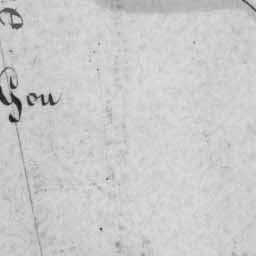 e
Gou